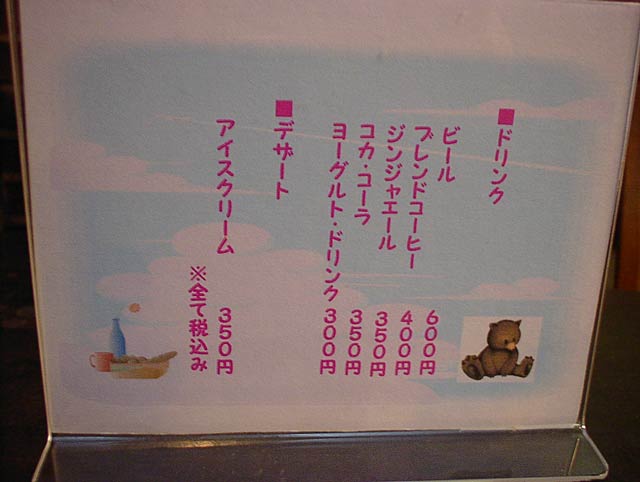 ■ドリンク
ビール 600円
ブレンドコーヒー 400円
ジンジャエール 350円
コカ・コーラ 350円
ヨーグルト・ドリンク 300円
■デザート
アイスクリーム 350円
※全て税込み